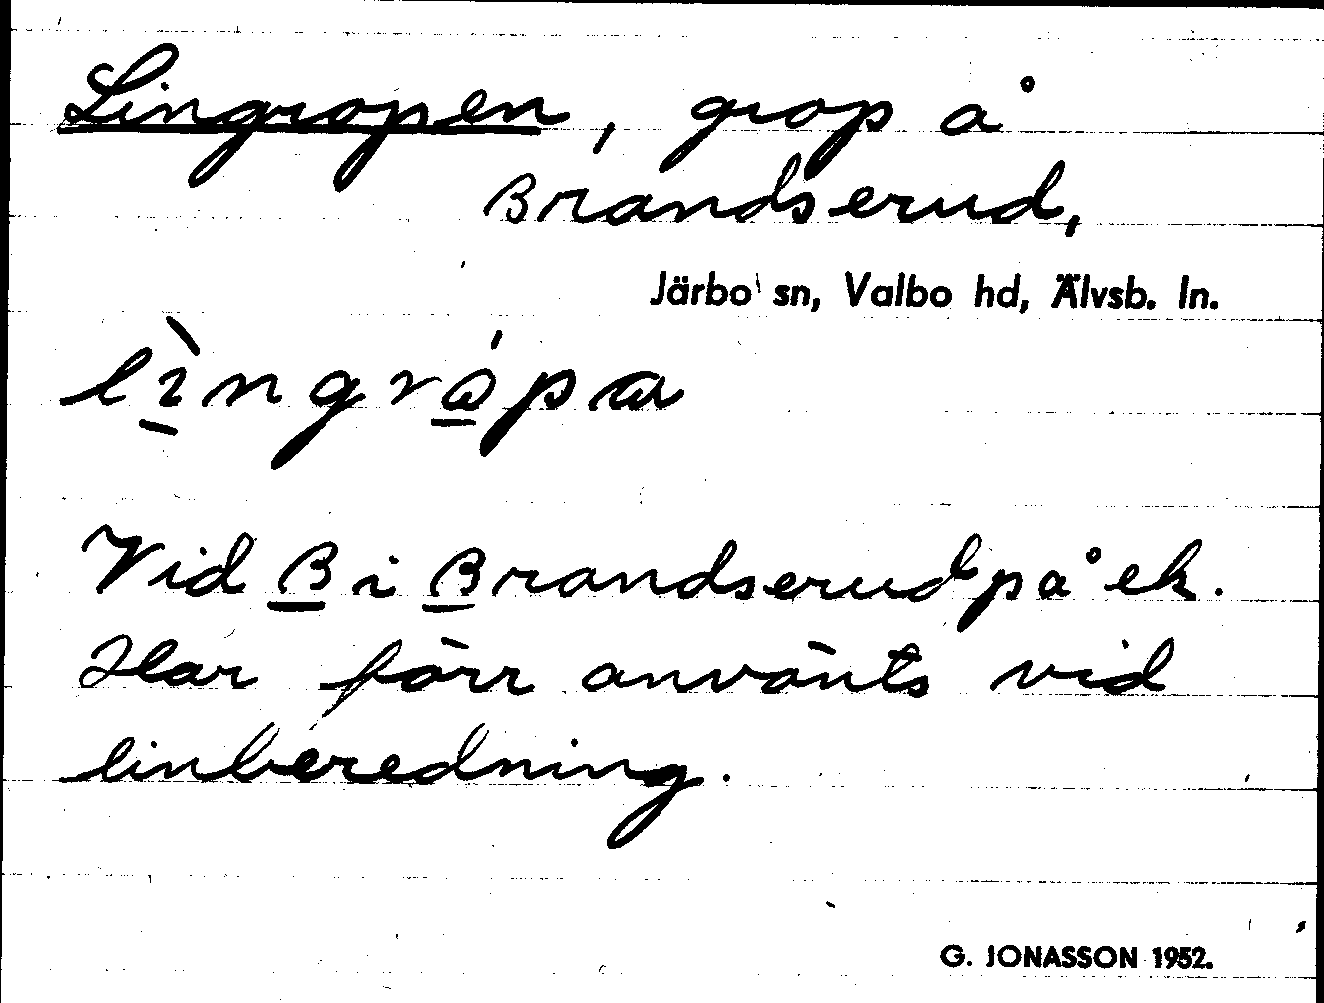 Lingropen, grop å
Brandserud,
Järbo sn, Valbo hd, Älvsb. ln.
Vid B i Brandserud på ek.
Har förr använts vid
linberedning.
G. JONASSON 1952.